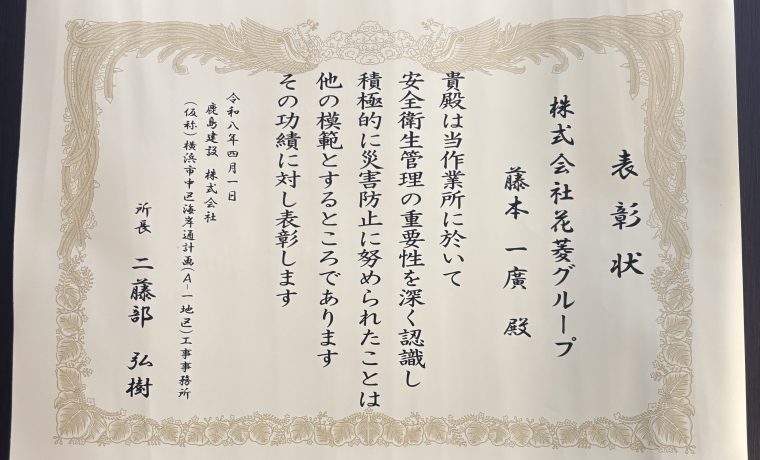 表彰状
株式会社花菱グループ
藤本一廣 殿
貴殿は当作業所に於いて
安全衛生管理の重要性を深く認識し
積極的に災害防止に努められたことは
他の模範とするところであります
その功績に対し表彰します
令和八年四月一日
鹿島建設 株式会社
(仮称)横浜市中区海岸通計画(A-一地区)工事事務所
所長 二藤部 弘樹